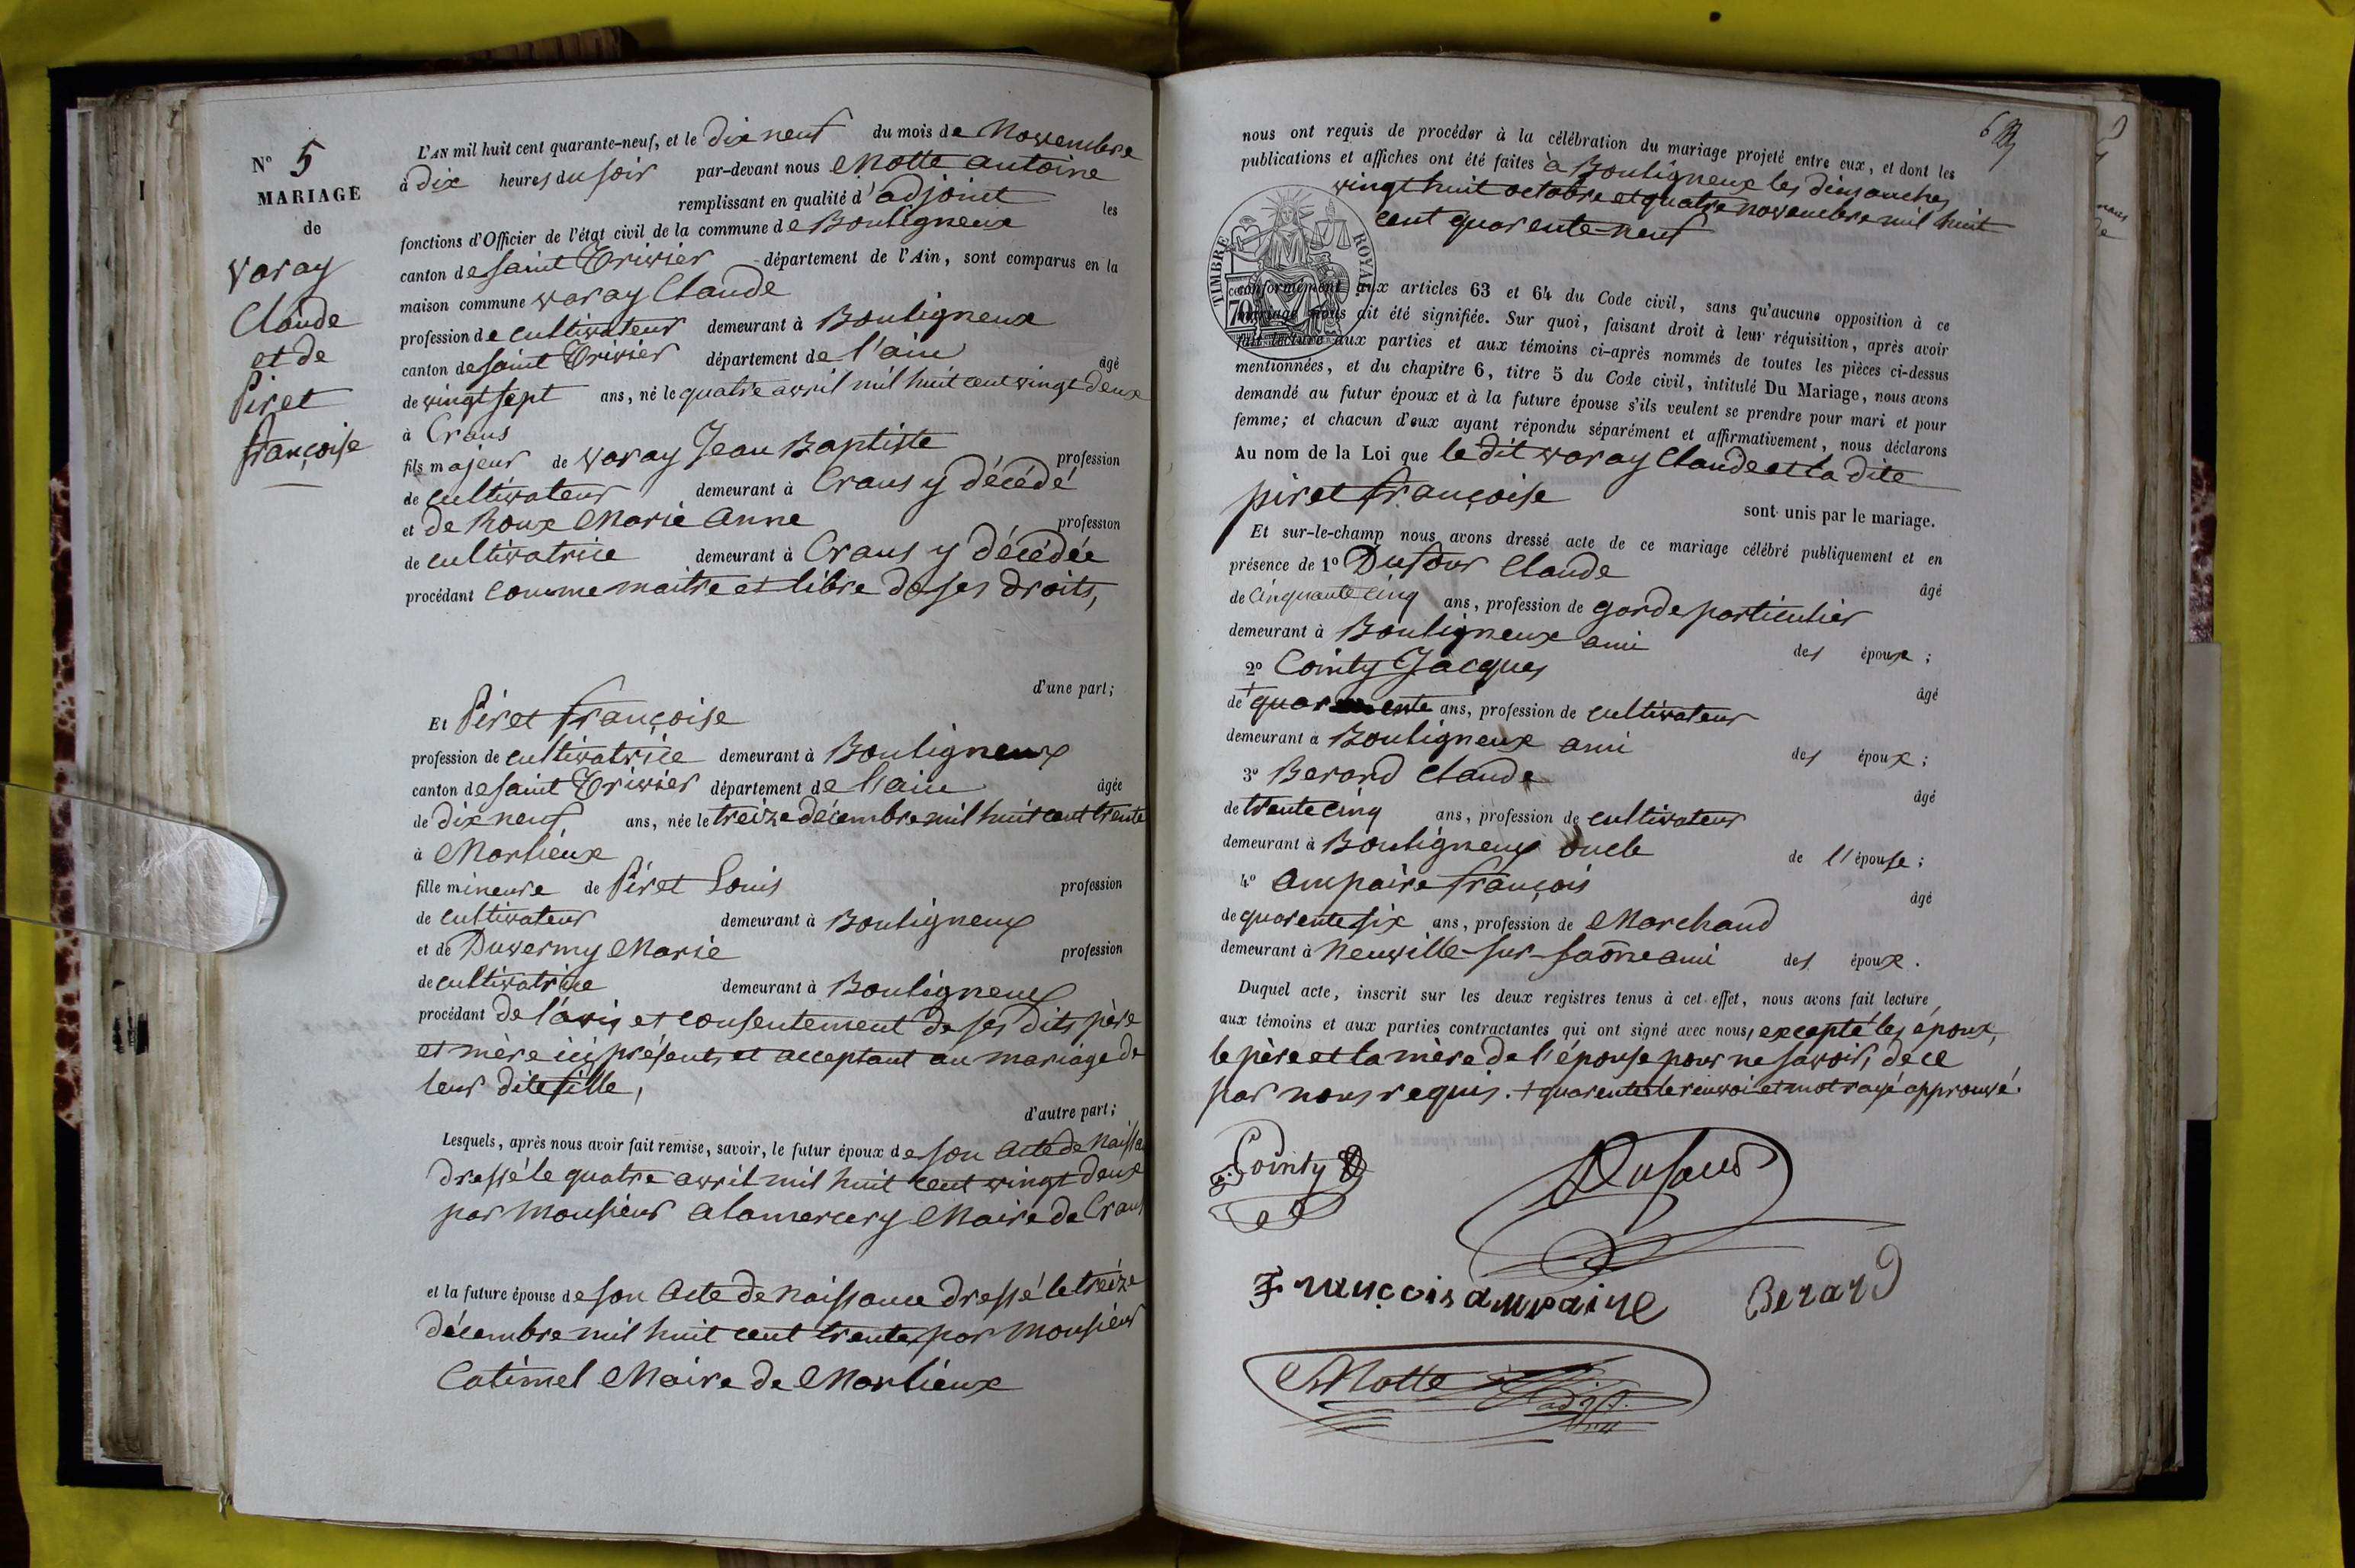 N° 5
MARIAGE
de
Varay
Claude
et de
Piret
françoise
L'AN mil huit cent quarante-neuf, et le dix neuf du mois de Novembre
à dix heures du soir par-devant nous Motte antoine
remplissant en qualité d'adjoint les
fonctions d'Officier de l'état civil de la commune de Bouligneux
canton de saint Trivier département de l'Ain, sont comparus en la
maison commune varay Claude
profession de cultivateur demeurant à Bouligneux
canton de saint Trivier département de l'ain âgé
de vingt sept ans, né le quatre avril mil huit cent vingt deux
à Crans
fils majeur de varay Jean Baptiste profession
de cultivateur demeurant à Crans y décédé
et de Roux Marie Anne profession
de cultivatrice demeurant à Crans y décédée
procédant comme maitre et libre de ses droits,
d'une part;
Et Piret françoise
profession de cultivatrice demeurant à Bouligneux
canton de saint Trivier département de l'ain âgée
de dix neuf ans, née le treize décembre mil huit cent trente
à Marlieux
fille mineure de Piret Louis profession
de cultivateur demeurant à Bouligneux
et de Duvermy Marie profession
de cultivatrice demeurant à Bouligneux
procédant de l'avis et consentement de ses dits père
et mère ici présents et acceptant au mariage de
leur dite fille,
d'autre part;
Lesquels, après nous avoir fait remise, savoir, le futur époux de son acte de Naissa
dressé le quatre avril mil huit cent vingt deux
par Monsieur alamercery Maire de Crans
et la future épouse de son acte de naissance dressé le treize
décembre mil huit cent trente par Monsieur
Catimel Maire de Marlieux
nous ont requis de procéder à la célébration du mariage projeté entre eux, et dont les
publications et affiches ont été faites à Bouligneux les dimanches
vingt huit octobre et quatre novembre mil huit
cent quarente-neuf
TIMBRE ROYAL
70
conformément aux articles 63 et 64 du Code civil, sans qu'aucune opposition à ce
mariage nous ait été signifiée. Sur quoi, faisant droit à leur réquisition, après avoir
fait lecture aux parties et aux témoins ci-après nommés de toutes les pièces ci-dessus
mentionnées, et du chapitre 6, titre 5 du Code civil, intitulé Du Mariage, nous avons
demandé au futur époux et à la future épouse s'ils veulent se prendre pour mari et pour
femme; et chacun d'eux ayant répondu séparément et affirmativement, nous déclarons
Au nom de la Loi que le dit varay Claude et la dite
piret françoise
sont unis par le mariage.
Et sur-le-champ nous avons dressé acte de ce mariage célébré publiquement et en
présence de 1° Dufour Claude
âgé
de Cinquante cinq ans, profession de garde particulier
demeurant à Bouligneux ami des époux;
2° Cointy Jacques
âgé
de + quarente ans, profession de cultivateur
demeurant à Bouligneux ami des époux;
3° Berard Claude
âgé
de trente cinq ans, profession de cultivateur
demeurant à Bouligneux oncle de l'épouse;
4° ampaire françois
âgé
de quarente six ans, profession de Marchand
demeurant à Neuville-sur-saône ami des époux.
Duquel acte, inscrit sur les deux registres tenus à cet effet, nous avons fait lecture
aux témoins et aux parties contractantes qui ont signé avec nous, excepté les époux,
le père et la mère de l'épouse pour ne savoir, de ce
par nous requis. + quarente le renvoi et mot rayé approuvé.
Cointy
Dufour
François ampaire Berard
Motte adjt.